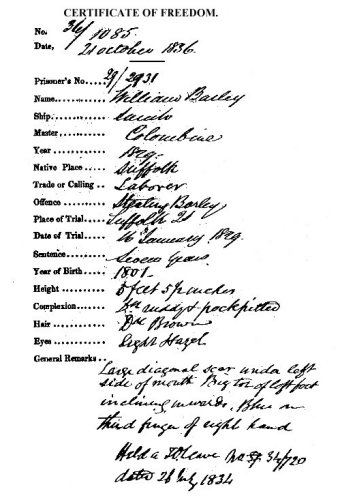 CERTIFICATE OF FREEDOM.
No. 36/1085.
Date, 21 October 1836.
Prisoner's No. 29/2931
Name William Barley
Ship
Master,
Year 1829.
Native Place Suffolk
Trade or Calling Laborer
Offence Stealing Barley
Place of Trial Suffolk
Date of Trial 16 January 1829.
Sentence Seven Years
Year of Birth 1801
Height 5 feet 5 inches
Complexion ruddy & pockpitted
Hair Brown
Eyes Light Hazel
General Remarks
Large diagonal scar under left
side of mouth Big toe of left foot
inclining inwards. Blue on
third finger of right hand
Held a T. Leave No 34/720
dated July 1834